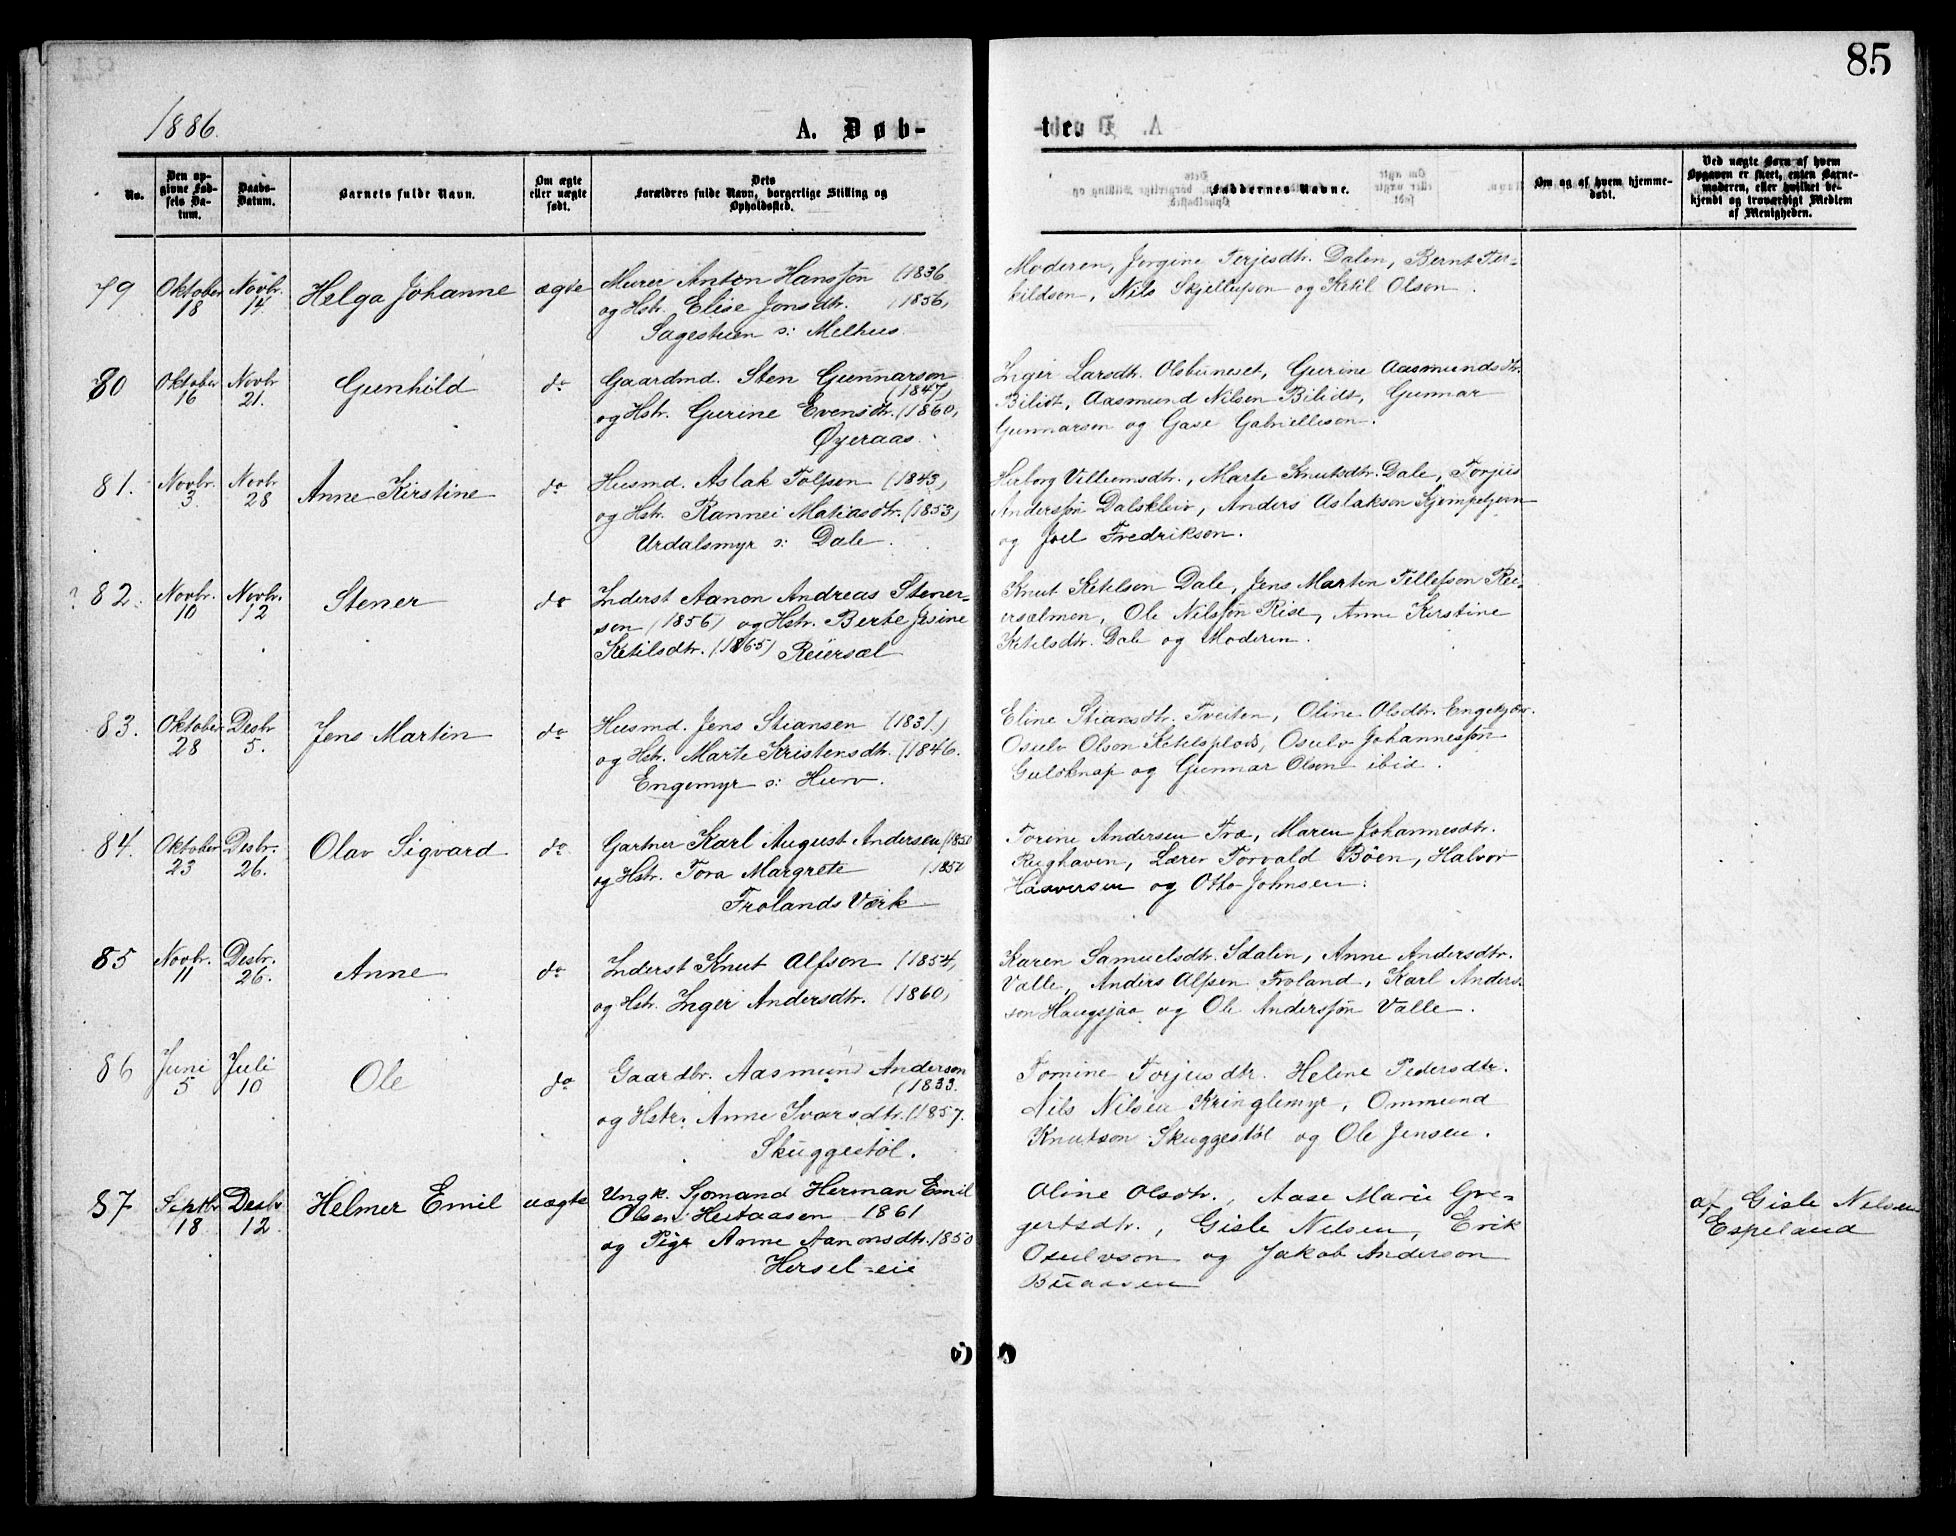 85
1886.
A. Døb-
te.
No.
Den op-
givne Fød-
sels Da-
tum.
Daabs-
Datum.
Barnets fulde Navn.
Om ægte
eller uægte
født.
Dets
Forældres fulde Navn, borgerlige Stilling og
Opholdssted.
Faddernes Navne.
Om og af hvem hjemme-
døbt.
Ved uægte Børn af hvem
Opgaven er skeet, enten Barne-
moderen, eller hvilket be-
kjendt og troværdigt Medlem
af Menigheden.
79 Oktober 18 Novbr. 14. Helga Johanne ægte
Murer Anton Hansson (1836
og Hstr. Elise Jonsdtr. (1856)
Sagestuen s: Melhus.
Moderen, Jorgine Terjesdtr. Dalen, Bernt Ter-
kildson, Nils Skjellufson og Ketil Olson.
80 Oktober 16 Novbr 21. Gunhild do
Gaardmd. Sten Gunnarson
(1847)
og Hstr. Gurine Evensdtr. (1860)
Øyeraas.
Inger Larsdtr. Osbuneset, Gurine Aasmundsdtr.
Bilidt, Aasmund Nilsen Bilidt, Gunnar
Gunnarsen og Gase Gabrielleson.
81. Novbr. 3. Novbr 28 Anne Kirstine do
Husmd. Aslak Tolfson (1843)
og Hstr. Rannei Matiasdtr. (1853)
Urdalsmyr s: Dale.
Herborg Villumsdtr., Marte Knutsdtr. Dale, Torjus
Andersøn Dalskleiv, Anders Aslakson Kjempetjern
og Joel Fredrikson.
82. Novbr. 10 Novbr. 12 Stener do
Inderst Aanon Andreas Stener-
son (1856) og Hstr. Berte Jesine
Ketilsdtr. (1865) Reiersæl
Knut Ketelson Dale, Jens Martin Tellefson Rei-
ersælmoen, Ole Nilsson Rise, Anne Kirstine
Ketilsdtr. Dale og Moderen.
83. Oktober 28 Desbr 5. Jens Martin do
Husmd. Jens Stiansen (1831.)
og Hstr. Marte Kristensdtr. (1846.
Engemyr s: Hurv.
Eline Stiansdtr. Tveiten, Oline Olsdtr. Engekjær.
Osulv Olson Ketelsplads, Osulv Johannesson
Gulsknap og Gunnar Olson ibid.
84. Oktober 23 Desbr. 26. Olav Sigvard do
Gartner Karl August Andersen (1850
og Hstr. Tora Margrete (1850
Frolands Værk
Torine Andersen Træ, Maren Johannesdtr.
Rughaven, Lærer Torvald Bøen, Halvor
Haaversen og Otto Johnsen.
85 Novbr. 11 Desbr. 26. Anne do
Inderst Knut Alfson (1854)
og Hstr. Inger Andersdtr. (1860)
Karen Samuelsdtr. Idalen, Anne Andersdtr.
Valle, Anders Alfsen Froland, Karl Anders-
son Haugsjaa og Ole Anderssøn Valle.
86 Juni 5 Juli 10 Ole do
Gaardbr. Aasmund Anderson
(1833.
og Hstr. Anne Ivarsdtr. (1857.
Skuggestøl.
Tomine Torjusdtr. Heline Pedersdtr.
Nils Nilsen Kringlemyr, Ommund
Knutson Skuggestøl og Ole Jensen.
87 Septbr 18. Desbr 12. Helmer Emil uægte
Ungk. Sjømand Herman Emil
Olsen Hestaasen 1861
og Pige Anne Aanonsdtr. 1850
Hersel-eie
Oline Olsdtr., Aase Marie Gre-
gertsdtr., Gisle Nelsen, Erik
Osulvson og Jakob Anderson
Buaasen
af Gisle Nelsen
Espeland